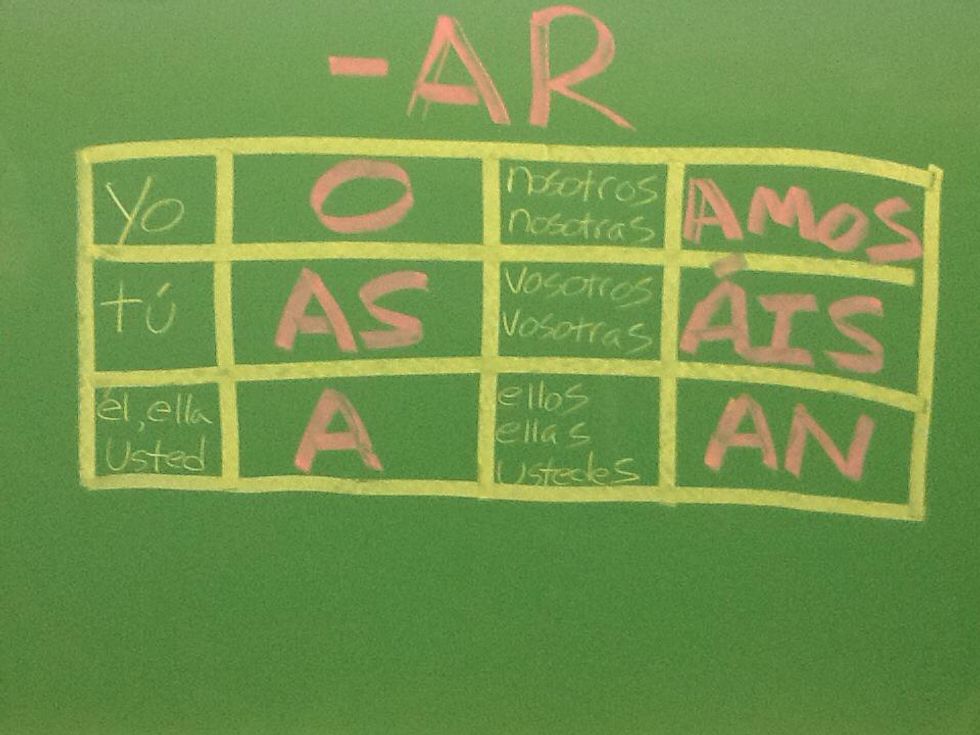 -AR
yo O nosotros AMOS
nosotras
tú AS vosotros ÁIS
vosotras
él, ella A ellos AN
usted ellas
ustedes